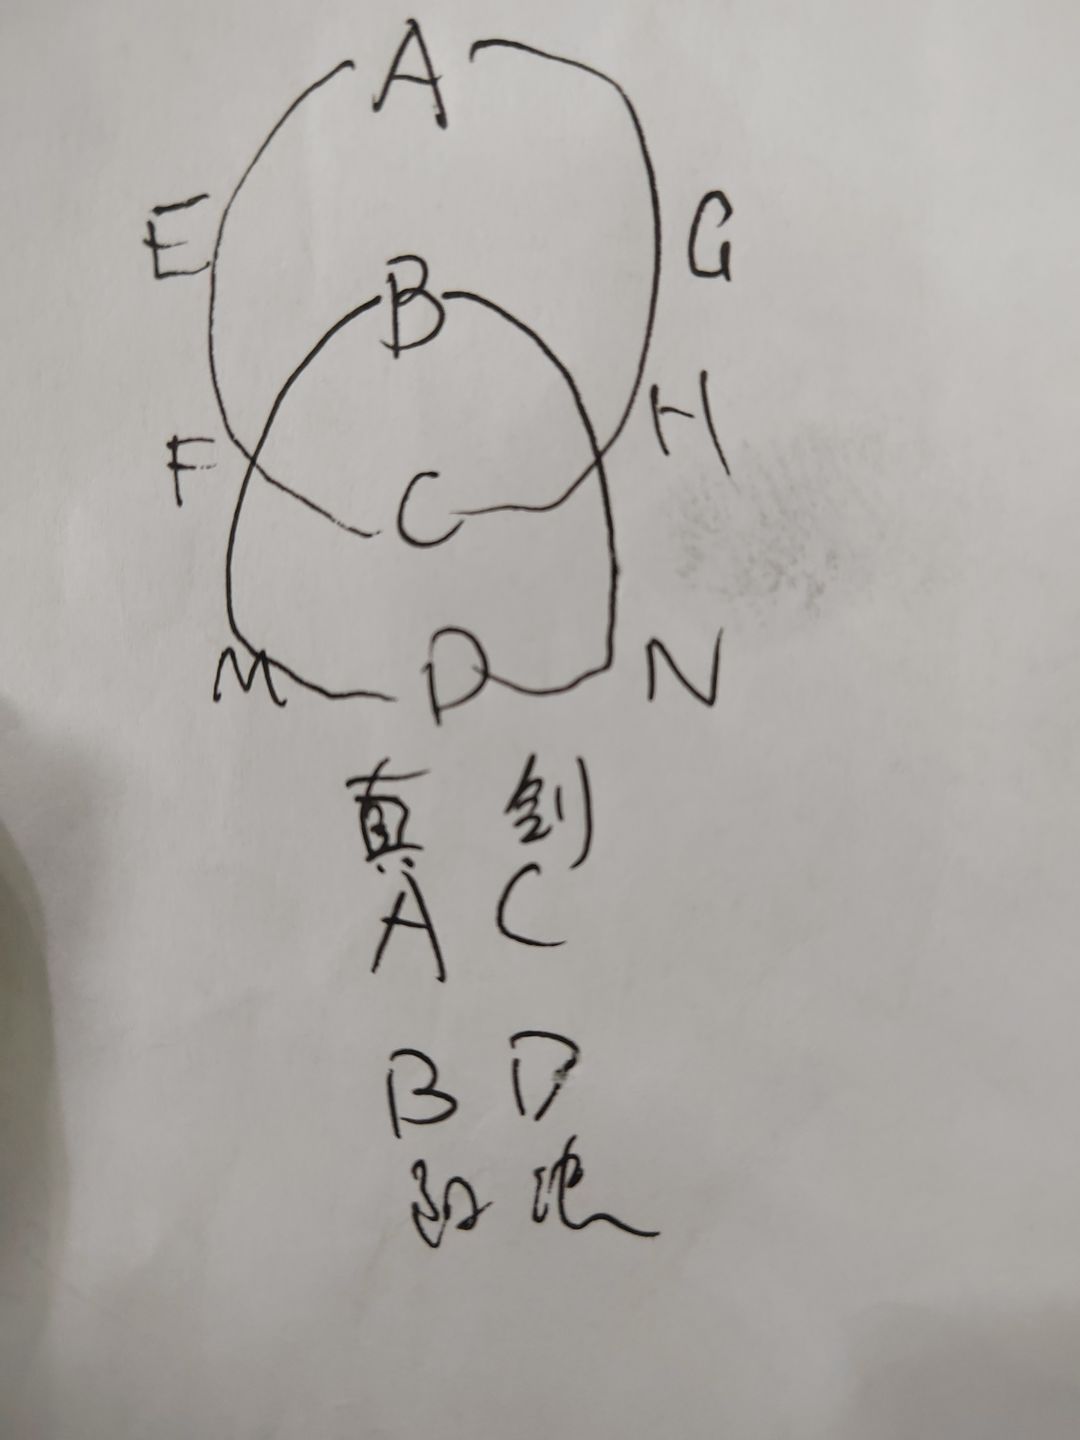 A
E G
B
F H
C
M D N
真 剑
A C
B D